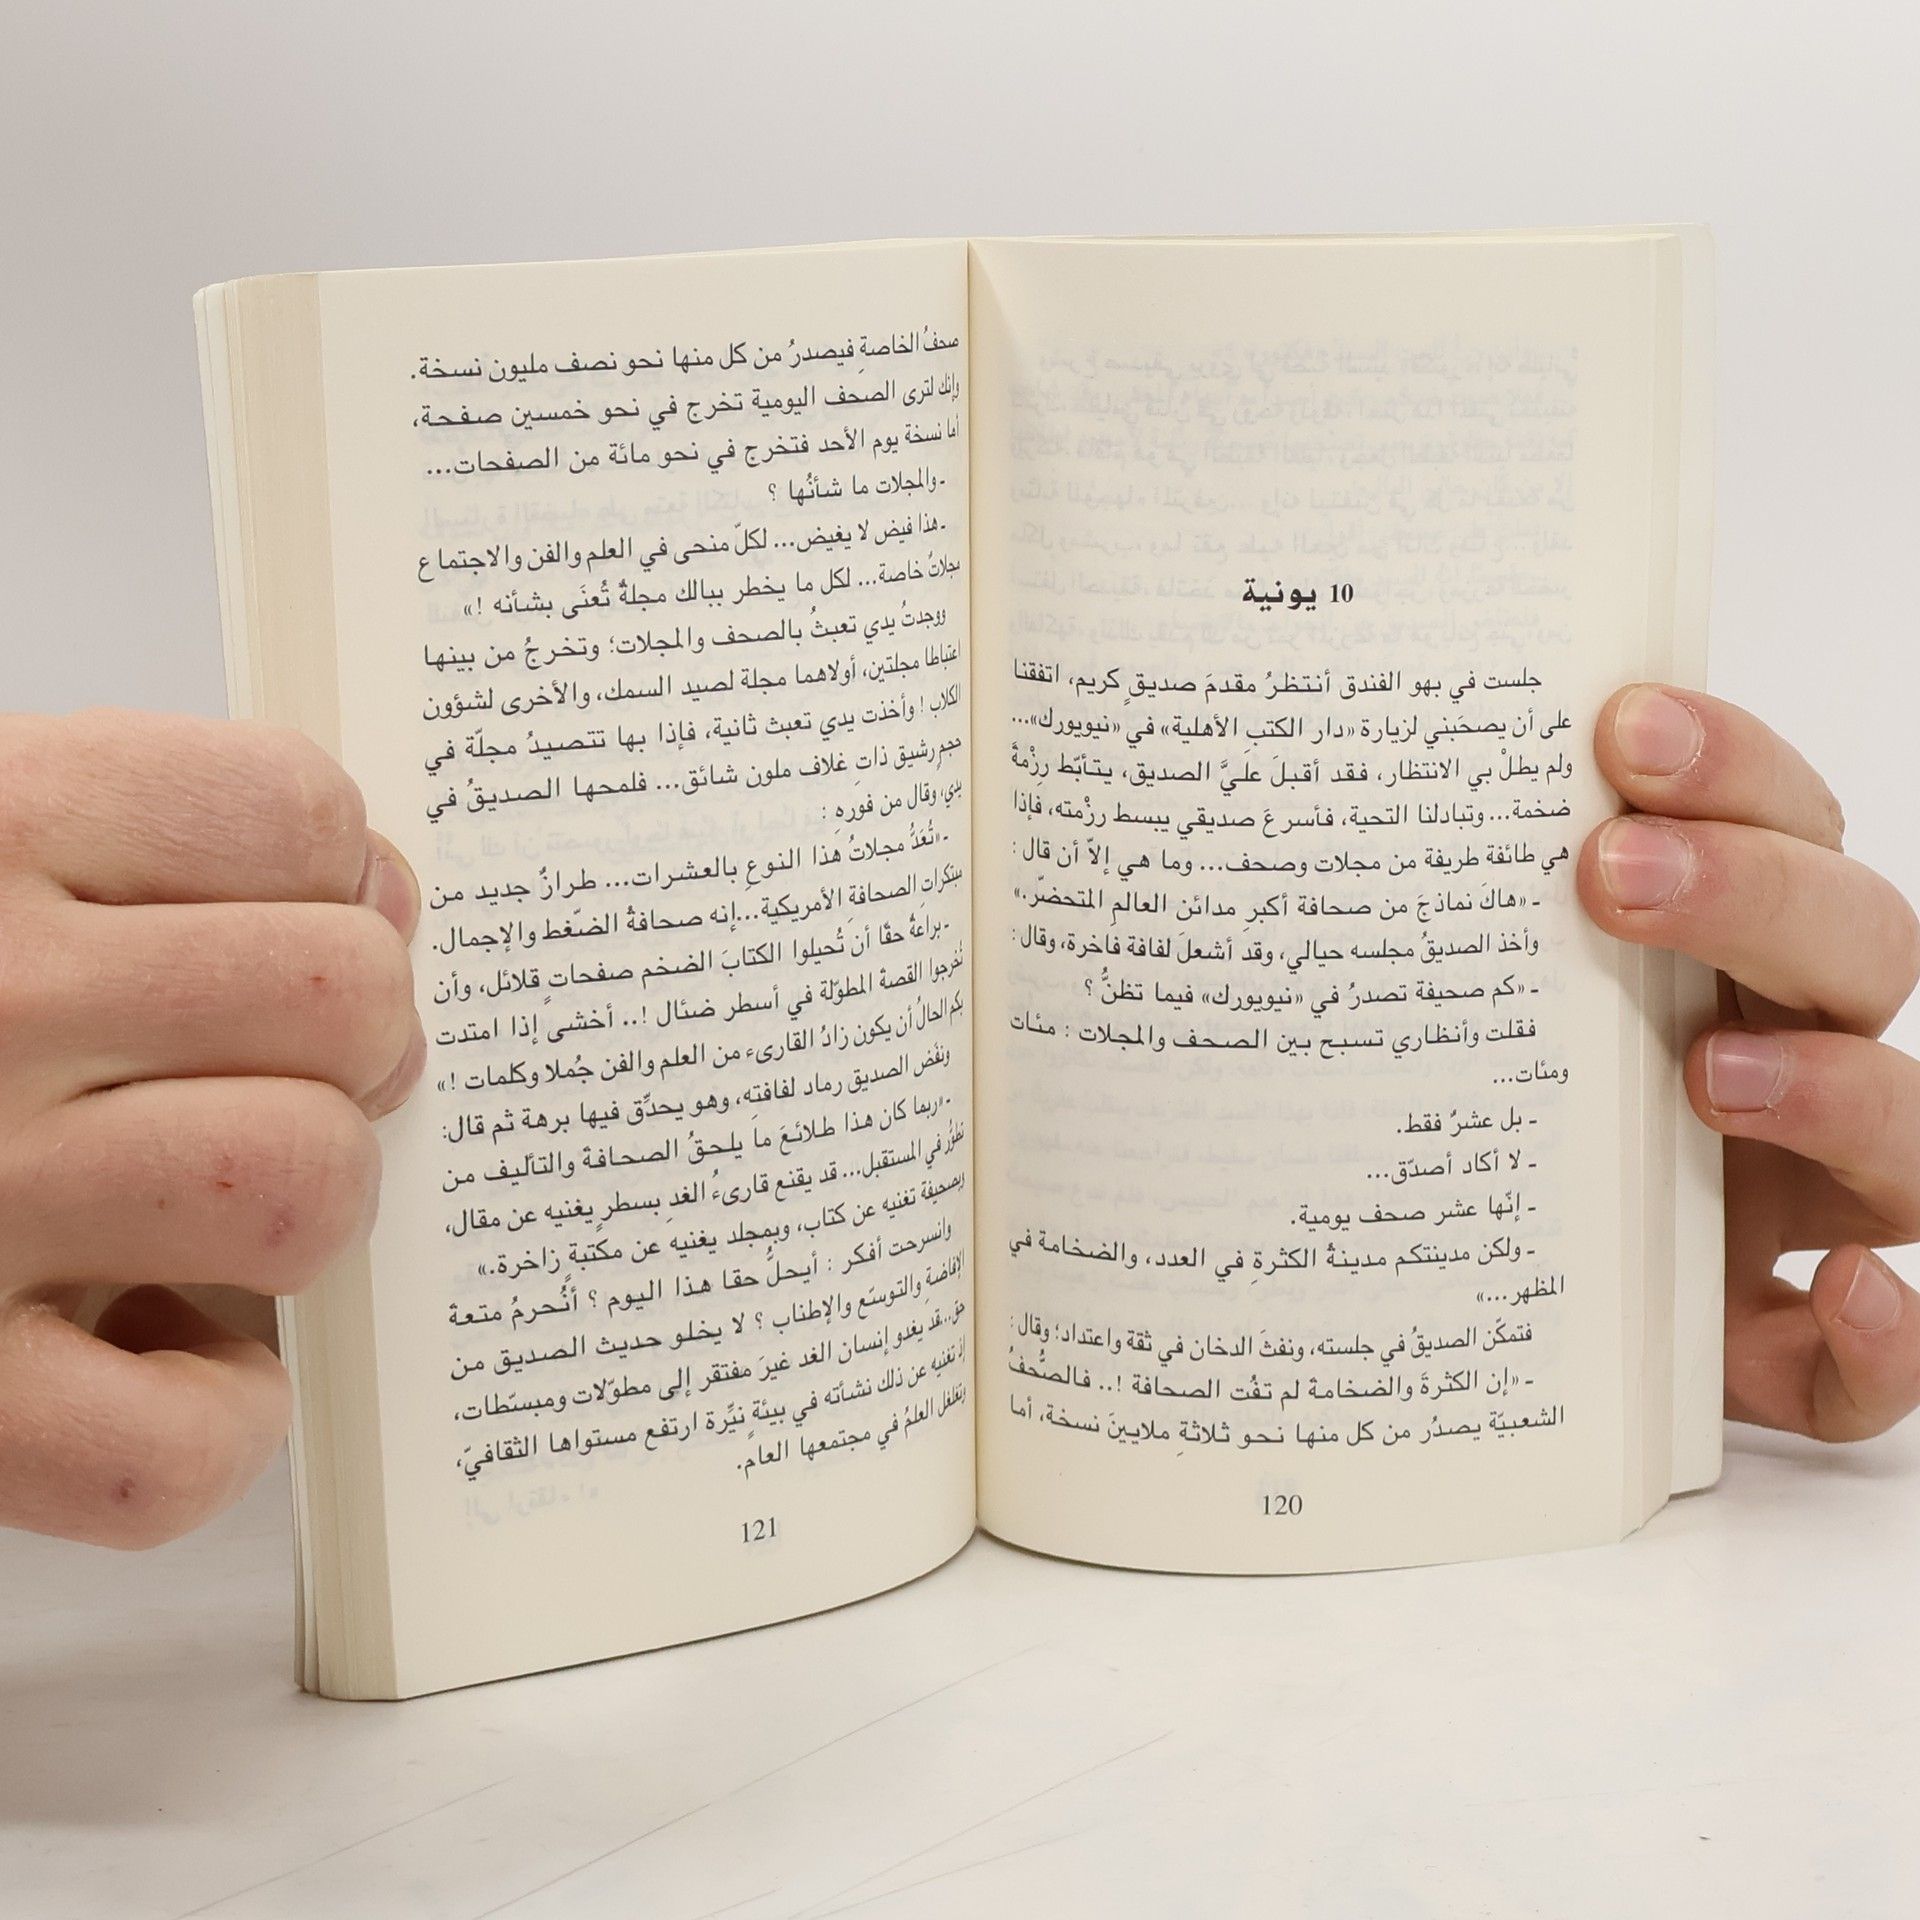 10 يونية
جلست في بهو الفندق أنتظرُ مقدمَ صديقٍ كريم، اتفقنا
على أن يصحَبني لزيارة «دار الكتبِ الأهلية» في «نيويورك»...
ولم يطلْ بي الانتظار، فقد أقبلَ عليَّ الصديق، يتأبّط رِزْمةً
ضخمة... وتبادلنا التحية، فأسرعَ صديقي يبسط رزْمته، فإذا
هي طائفة طريفة من مجلات وصحف... وما هي إلاّ أن قال :
ـ «هاكَ نماذجَ من صحافة أكبرِ مدائن العالمِ المتحضّر.»
وأخذ الصديقُ مجلسه حيالي، وقد أشعلَ لفافة فاخرة، وقال :
ـ «كم صحيفة تصدرُ في «نيويورك» فيما تظنُّ ؟
فقلت وأنظاري تسبح بين الصحف والمجلات : مئات
ومئات...
ـ بل عشرٌ فقط.
ـ لا أكاد أصدّق...
ـ إنّها عشر صحف يومية.
ـ ولكن مدينتكم مدينةُ الكثرةِ في العدد، والضخامة في
المظهر...»
فتمكّن الصديقُ في جلسته، ونفثَ الدخان في ثقة واعتداد؛ وقال :
ـ «إن الكثرةَ والضخامةَ لم تفُت الصحافة !.. فالصُّحفُ
الشعبيّة يصدُر من كل منها نحو ثلاثةِ ملايينَ نسخة، أما
120
صحفُ الخاصةِ فيصدرُ من كل منها نحو نصف مليون نسخة.
وإنك لترى الصحف اليومية تخرج في نحو خمسين صفحة،
أما نسخة يوم الأحد فتخرج في نحو مائة من الصفحات...
ـ والمجلات ما شأنُها ؟
ـ هذا فيض لا يغيض... لكلّ منحى في العلم والفن والاجتماع
مجلاتٌ خاصة... لكل ما يخطر ببالك مجلةٌ تُعنَى بشأنه !»
ووجدتُ يدي تعبثُ بالصحف والمجلات؛ وتخرجُ من بينها
اعتباطا مجلتين، أولاهما مجلة لصيد السمك، والأخرى لشؤون
الكلاب ! وأخذت يدي تعبث ثانية، فإذا بها تتصيدُ مجلّة في
حجم رشيق ذاتِ غلاف ملون شائق... فلمحها الصديقُ في
يدي، وقال من فورِه :
ـ «تُعَدُّ مجلاتُ هذا النوعِ بالعشرات... طرازٌ جديد من
مبتكراتِ الصحافةِ الأمريكية...إنه صحافةُ الضّغط والإجمال.
ـ براعةٌ حقّا أن تُحيلوا الكتابَ الضخم صفحاتٍ قلائل، وأن
تُخرجوا القصة المطوّلة في أسطر ضئال !.. أخشى إذا امتدت
بكم الحالُ أن يكون زادُ القارىء من العلم والفن جُملا وكلمات !»
ونفَض الصديق رماد لفافتهِ، وهو يحدِّق فيها برهة ثم قال:
ـ «ربما كان هذا طلائعَ ما يلحقُ الصحافةَ والتأليف من
تطوُّر في المستقبل... قد يقنع قارىءُ الغدِ بسطرٍ يغنيه عن مقال،
وبصحيفة تغنيه عن كتاب، وبمجلد يغنيه عن مكتبةٍ زاخرة.»
وانسرحت أفكر : أيحلُّ حقا هذا اليوم ؟ أنُحرمُ متعةَ
الإفاضةِ والتوسّع والإطناب ؟ لا يخلو حديث الصديق من
حق...قد يغدو إنسان الغد غيرَ مفتقر إلى مطوّلات ومبسّطات،
إذ تغنيه عن ذلك نشأته في بيئةٍ نيِّرة ارتفع مستواها الثقافيّ،
وتغلغل العلمُ في مجتمعها العام.
121